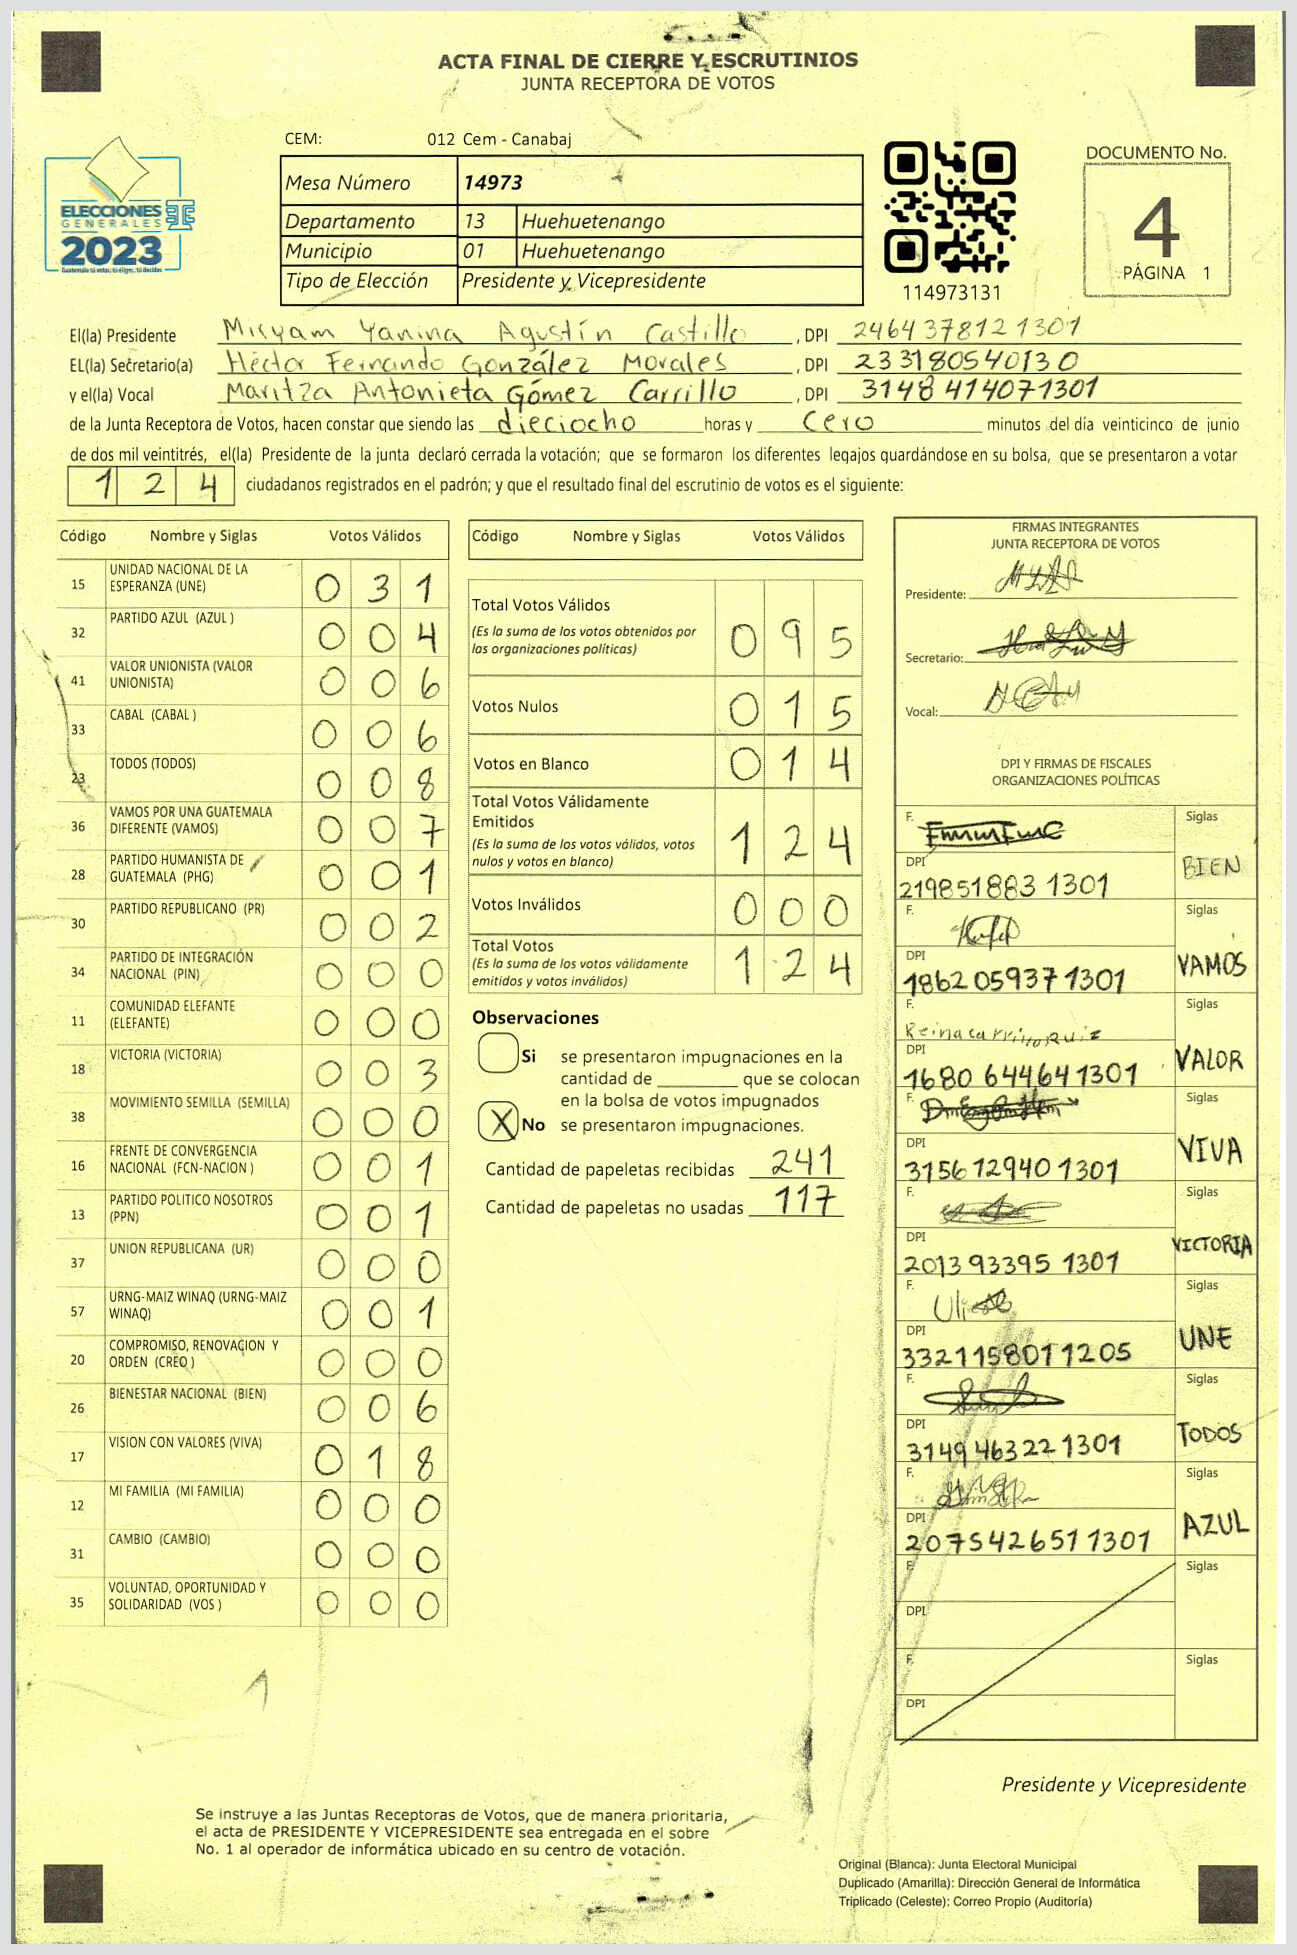 ACTA FINAL DE CIERRE Y ESCRUTINIOS
JUNTA RECEPTORA DE VOTOS
CEM: 012 Cem - Canabaj
Mesa Número 14973
Departamento 13 Huehuetenango
Municipio 01 Huehuetenango
Tipo de Elección Presidente y Vicepresidente
ELECCIONES
GENERALES
2023
114973131
DOCUMENTO No.
4
PÁGINA 1
El(la) Presidente Miryam Yanina Agustín Castillo, DPI 2464378121301
EL(la) Secretario(a) Héctor Fernando González Morales, DPI 233180540130
y el(la) Vocal Maritza Antonieta Gómez Carrillo, DPI 3148 414071301
de la Junta Receptora de Votos, hacen constar que siendo las dieciocho horas y cero minutos del día veinticinco de junio
de dos mil veintitrés, el(la) Presidente de la junta declaró cerrada la votación; que se formaron los diferentes legajos guardándose en su bolsa, que se presentaron a votar
1 2 4 ciudadanos registrados en el padrón; y que el resultado final del escrutinio de votos es el siguiente:
Código Nombre y Siglas Votos Válidos
15 UNIDAD NACIONAL DE LA ESPERANZA (UNE) 0 3 1
32 PARTIDO AZUL (AZUL ) 0 0 4
41 VALOR UNIONISTA (VALOR UNIONISTA) 0 0 6
33 CABAL (CABAL ) 0 0 6
23 TODOS (TODOS) 0 0 8
36 VAMOS POR UNA GUATEMALA DIFERENTE (VAMOS) 0 0 7
28 PARTIDO HUMANISTA DE GUATEMALA (PHG) 0 0 1
30 PARTIDO REPUBLICANO (PR) 0 0 2
34 PARTIDO DE INTEGRACIÓN NACIONAL (PIN) 0 0 0
11 COMUNIDAD ELEFANTE (ELEFANTE) 0 0 0
18 VICTORIA (VICTORIA) 0 0 3
38 MOVIMIENTO SEMILLA (SEMILLA) 0 0 0
16 FRENTE DE CONVERGENCIA NACIONAL (FCN-NACION ) 0 0 1
13 PARTIDO POLITICO NOSOTROS (PPN) 0 0 1
37 UNION REPUBLICANA (UR) 0 0 0
57 URNG-MAIZ WINAQ (URNG-MAIZ WINAQ) 0 0 1
20 COMPROMISO, RENOVACION Y ORDEN (CREO ) 0 0 0
26 BIENESTAR NACIONAL (BIEN) 0 0 6
17 VISION CON VALORES (VIVA) 0 1 8
12 MI FAMILIA (MI FAMILIA) 0 0 0
31 CAMBIO (CAMBIO) 0 0 0
35 VOLUNTAD, OPORTUNIDAD Y SOLIDARIDAD (VOS ) 0 0 0
Código Nombre y Siglas Votos Válidos
Total Votos Válidos
(Es la suma de los votos obtenidos por
las organizaciones políticas) 0 9 5
Votos Nulos 0 1 5
Votos en Blanco 0 1 4
Total Votos Válidamente
Emitidos
(Es la suma de los votos válidos, votos
nulos y votos en blanco) 1 2 4
Votos Inválidos 0 0 0
Total Votos
(Es la suma de los votos válidamente
emitidos y votos inválidos) 1 2 4
Observaciones
Si se presentaron impugnaciones en la
cantidad de ________ que se colocan
en la bolsa de votos impugnados
X No se presentaron impugnaciones.
Cantidad de papeletas recibidas 241
Cantidad de papeletas no usadas 117
FIRMAS INTEGRANTES
JUNTA RECEPTORA DE VOTOS
Presidente:
Secretario:
Vocal:
DPI Y FIRMAS DE FISCALES
ORGANIZACIONES POLÍTICAS
F. Siglas
DPI BIEN
219851883 1301
F. Siglas
DPI VAMOS
1862 05937 1301
F. Siglas
Reina Carrillo Ruiz
DPI VALOR
1680 64464 1301
F. Siglas
DPI VIVA
3156 12940 1301
F. Siglas
DPI VICTORIA
2013 93395 1301
F. Siglas
DPI UNE
3321158011205
F. Siglas
DPI TODOS
3149 46322 1301
F. Siglas
DPI AZUL
2075426511301
F. Siglas
DPI
F. Siglas
DPI
Presidente y Vicepresidente
Se instruye a las Juntas Receptoras de Votos, que de manera prioritaria,
el acta de PRESIDENTE Y VICEPRESIDENTE sea entregada en el sobre
No. 1 al operador de informática ubicado en su centro de votación.
Original (Blanca): Junta Electoral Municipal
Duplicado (Amarilla): Dirección General de Informática
Triplicado (Celeste): Correo Propio (Auditoría)